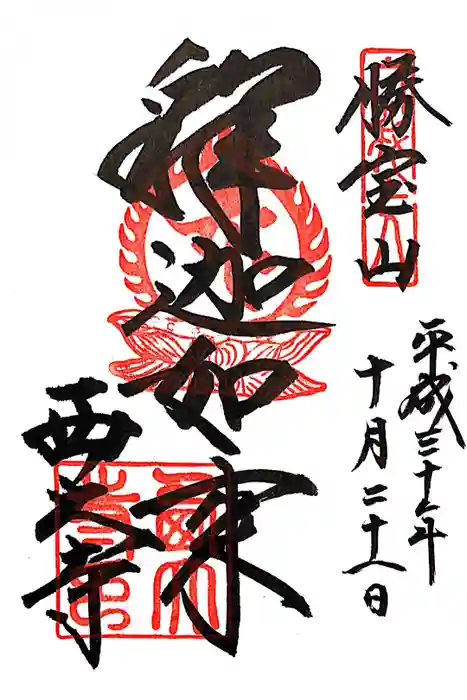 勝宝山
平成三十年
十月二十八日
釈迦如来
西大寺